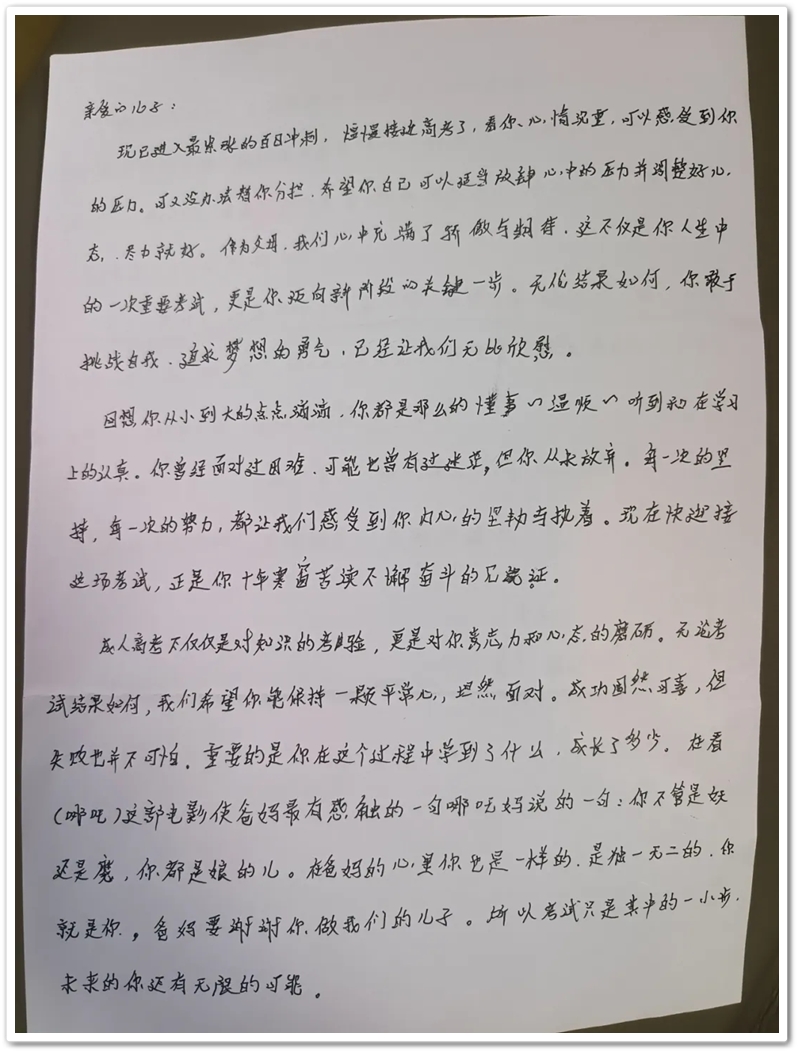 亲爱的儿子：
现已进入最紧张的百日冲刺，慢慢接近高考了，看你心情沉重，可以感受到你
的压力。可又没办法替你分担．希望你自己可以适当放松心中的压力并调整好心
态，尽力就好。作为父母．我们心中充满了骄傲与期待．这不仅是你人生中
的一次重要考试，更是你迈向新阶段的关键一步。无论结果如何，你敢于
挑战自我．追求梦想的勇气，已经让我们无比欣慰。
回想你从小到大的点点滴滴．你都是那么的懂事、温顺、听到和在学习
上的认真。你曾经面对过困难．可能也曾有过迷茫，但你从未放弃。每一次的坚
持，每一次的努力，都让我们感受到你内心的坚韧与执着。现在快迎接
这场考试，正是你十年寒窗苦读不懈奋斗的见证。
成人高考不仅仅是对知识的考验，更是对你意志力和心态的磨砺。无论考
试结果如何，我们希望你能保持一颗平常心，坦然面对。成功固然可喜，但
失败也并不可怕。重要的是你在这个过程中学到了什么，成长了多少。在看
(哪吒)这部电影使爸妈最有感触的一句哪吒妈说的一句：你不管是妖
还是魔，你都是娘的儿。在爸妈的心里你也是一样的．是独一无二的．你
就是你，爸妈要谢谢你做我们的儿子。所以考试只是其中的一小步．
未来的你还有无限的可能。